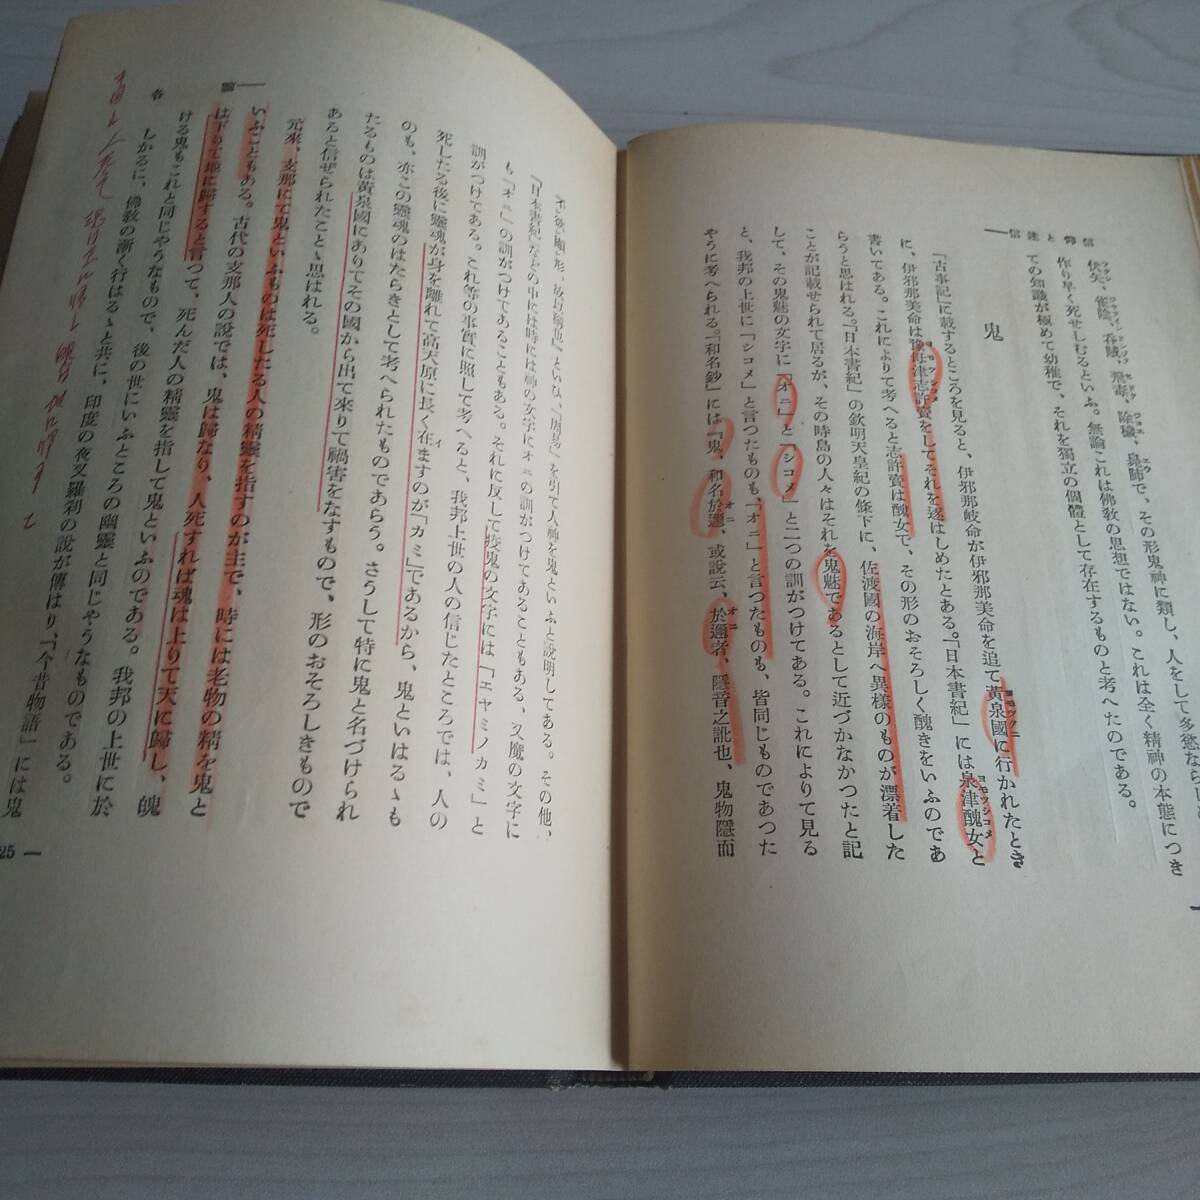 信仰と迷信
伏矢、雀陰、呑賊、飛毒、除穢、臭肺で、その形鬼神に類し、人をして多慾なら
作り早く死せしむるといふ。無論これは佛教の思想ではない。これは全く精神の本態につき
ての知識が極めて幼稚で、それを獨立の個體として存在するものと考へたのである。
鬼
「古事記」に載するところを見ると、伊邪那岐命が伊邪那美命を追て黄泉國に行かれたとき
に、伊邪那美命は豫母津志許賣をしてそれを逐はしめたとある。「日本書紀」には泉津醜女と
書いてある。これによりて考へると志許賣は醜女で、その形のおそろしく醜きをいふのであ
らうと思はれる。「日本書紀」の欽明天皇紀の條下に、佐渡國の海岸へ異様のものが漂着した
ことが記載せられて居るが、その時島の人々はそれを鬼魅であるとして近づかなかつたと記
して、その鬼魅の文字に「オニ」と「シコメ」と二つの訓がつけてある。これによりて見る
と、我邦の上世に「シコメ」と言つたものも、「オニ」と言つたものも、皆同じものであつた
やうに考へられる。「和名鈔」には「鬼、和名於邇、或説云、於邇者、隱音之訛也、鬼物隱而
不欲顯形、故以稱也」といひ、「周易」を引て人神を鬼といふと説明してある。その他、
「日本書紀」などの中には時には神の文字にオニの訓がつけてあることもある、又魔の文字に
も「オニ」の訓がつけてあることもある。それに反して疫鬼の文字には「エヤミノカミ」と
訓がつけてある。これ等の事實に照して考へると、我邦上世の人の信じたところでは、人の
死したる後に靈魂が身を離れて高天原に長く在ますのが「カミ」であるから、鬼といはるゝも
のも、亦この靈魂のはたらきとして考へられたものであらう。さうして特に鬼と名づけられ
たるものは黄泉國にありてその國から出て來りて禍害をなすもので、形のおそろしきもので
あると信ぜられたことゝ思はれる。
元來、支那にて鬼といふものは死したる人の精靈を指すのが主で、時には老物の精を鬼と
いふこともある。古代の支那人の説では、鬼は歸なり、人死すれば魂は上りて天に歸し、魄
は下りて地に歸すると言つて、死んだ人の精靈を指して鬼といふのである。我邦の上世に於
ける鬼もこれと同じやうなもので、後の世にいふところの幽靈と同じやうなものである。
しかるに、佛教の漸く行はるゝと共に、印度の夜叉羅刹の説が傳はり、「今昔物語」には鬼
25